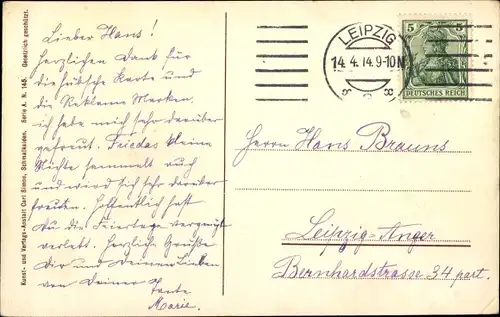 Lieber Hans!
Herzlichen Dank für
die hübsche Karte und
die Reklame Marken.
ich habe mich sehr darüber
gefreut. Friedas kleine
Nichte sammelt auch
und wird sich sehr darüber
freuen. Hoffentlich hast
du die Feiertage vergnügt
verlebt. Herzliche Grüße
Dir und Deinen Lieben
von Deiner Tante
Marie.
Gesetzlich geschützt.
Serie A. N. 145.
Kunst- und Verlags-Anstalt Carl Simon, Schmalkalden.
LEIPZIG
14.4.14.9-10N
8 8
5 5
DEUTSCHES REICH
Herrn Hans Brauns
Leipzig-Anger
Bernhardstrasse 34 part.